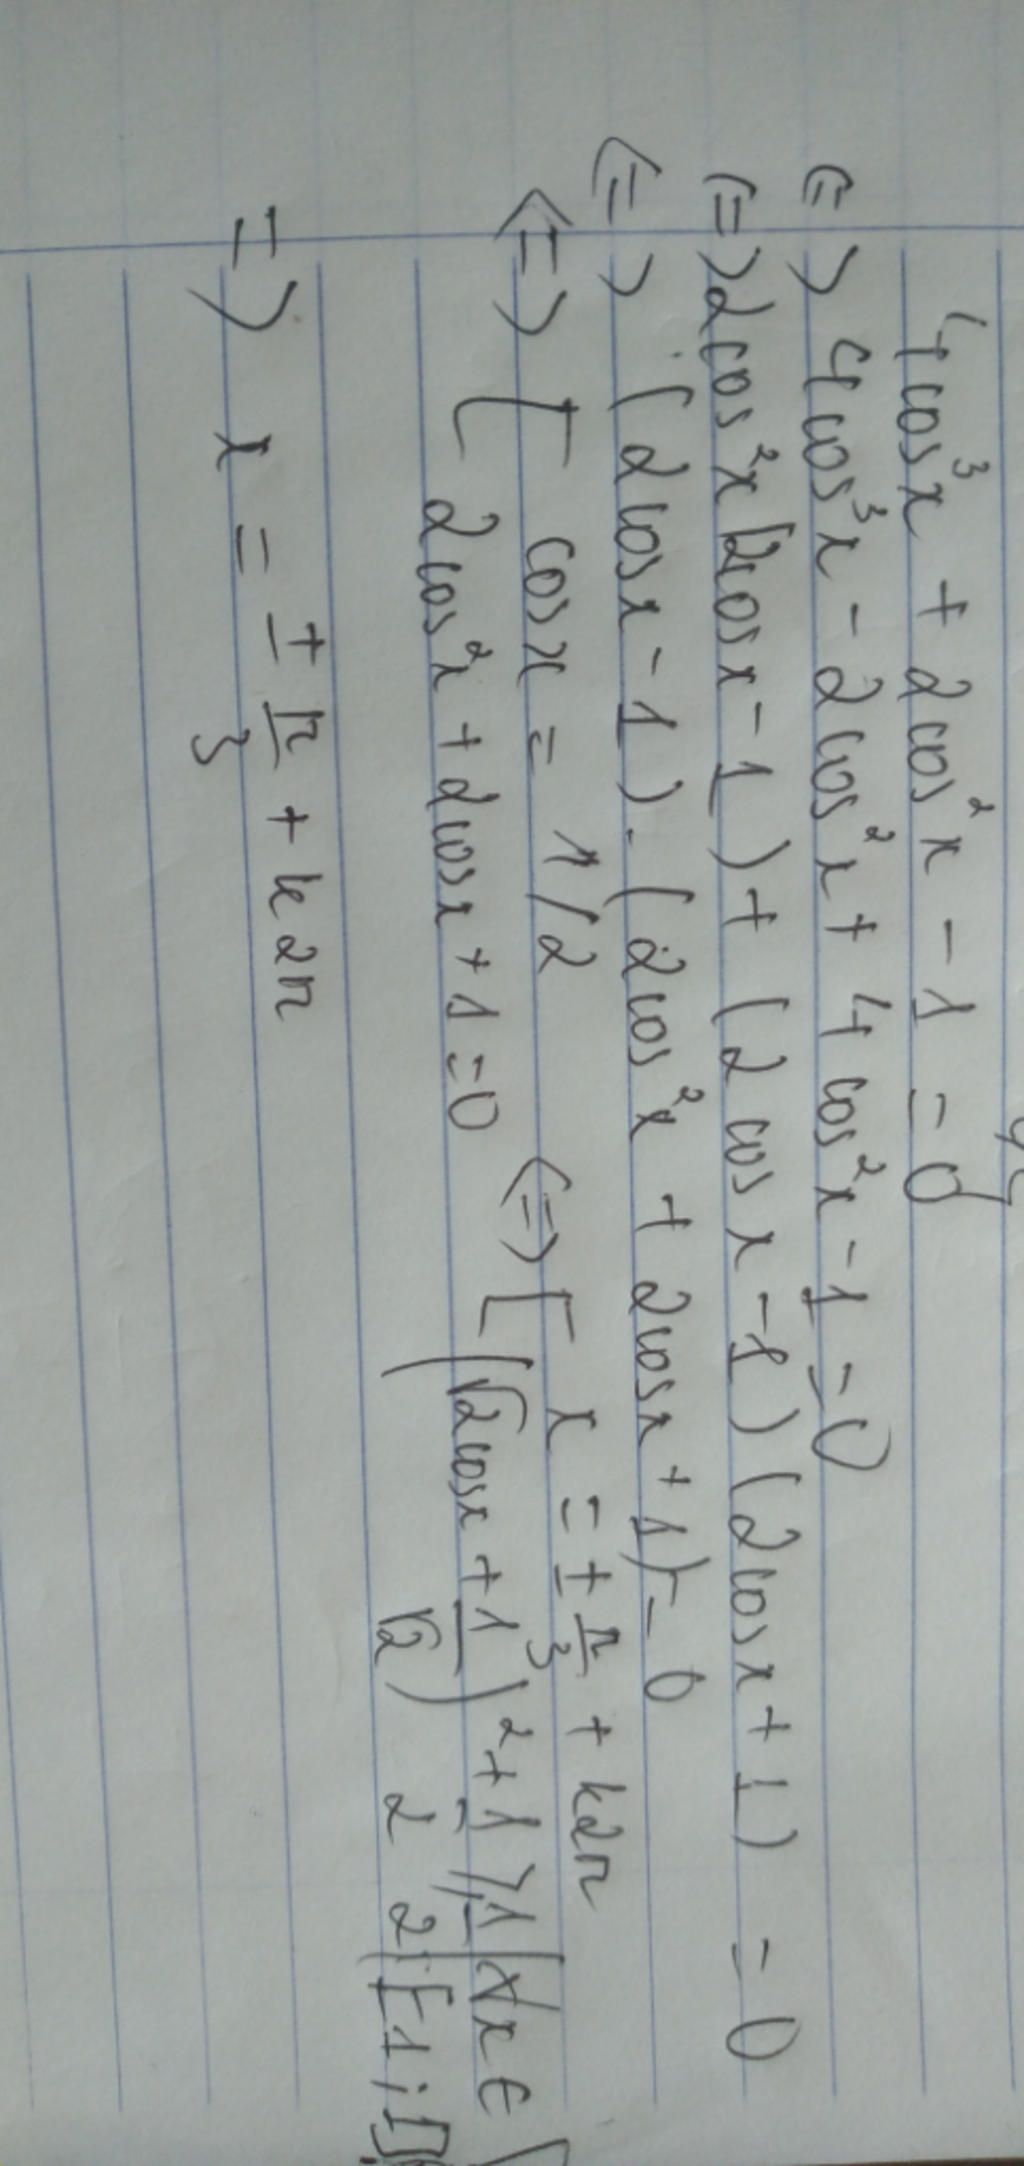 4cos³x + 2cos²x - 1 = 0
(=) 4cos³x - 2cos²x + 4cos²x - 1 = 0
(=) 2cos²x(2cosx - 1) + (2cosx - 1)(2cosx + 1) = 0
<=> (2cosx - 1).(2cos²x + 2cosx + 1) = 0
<=> [ cosx = 1/2
2cos²x + 2cosx + 1 = 0
<=> [ x = ± π/3 + k2π
(√2cosx + 1/√2)² + 1/2 ≥ 1/2 ∀x ∈ [-1;1]
=> x = ± π/3 + k2π